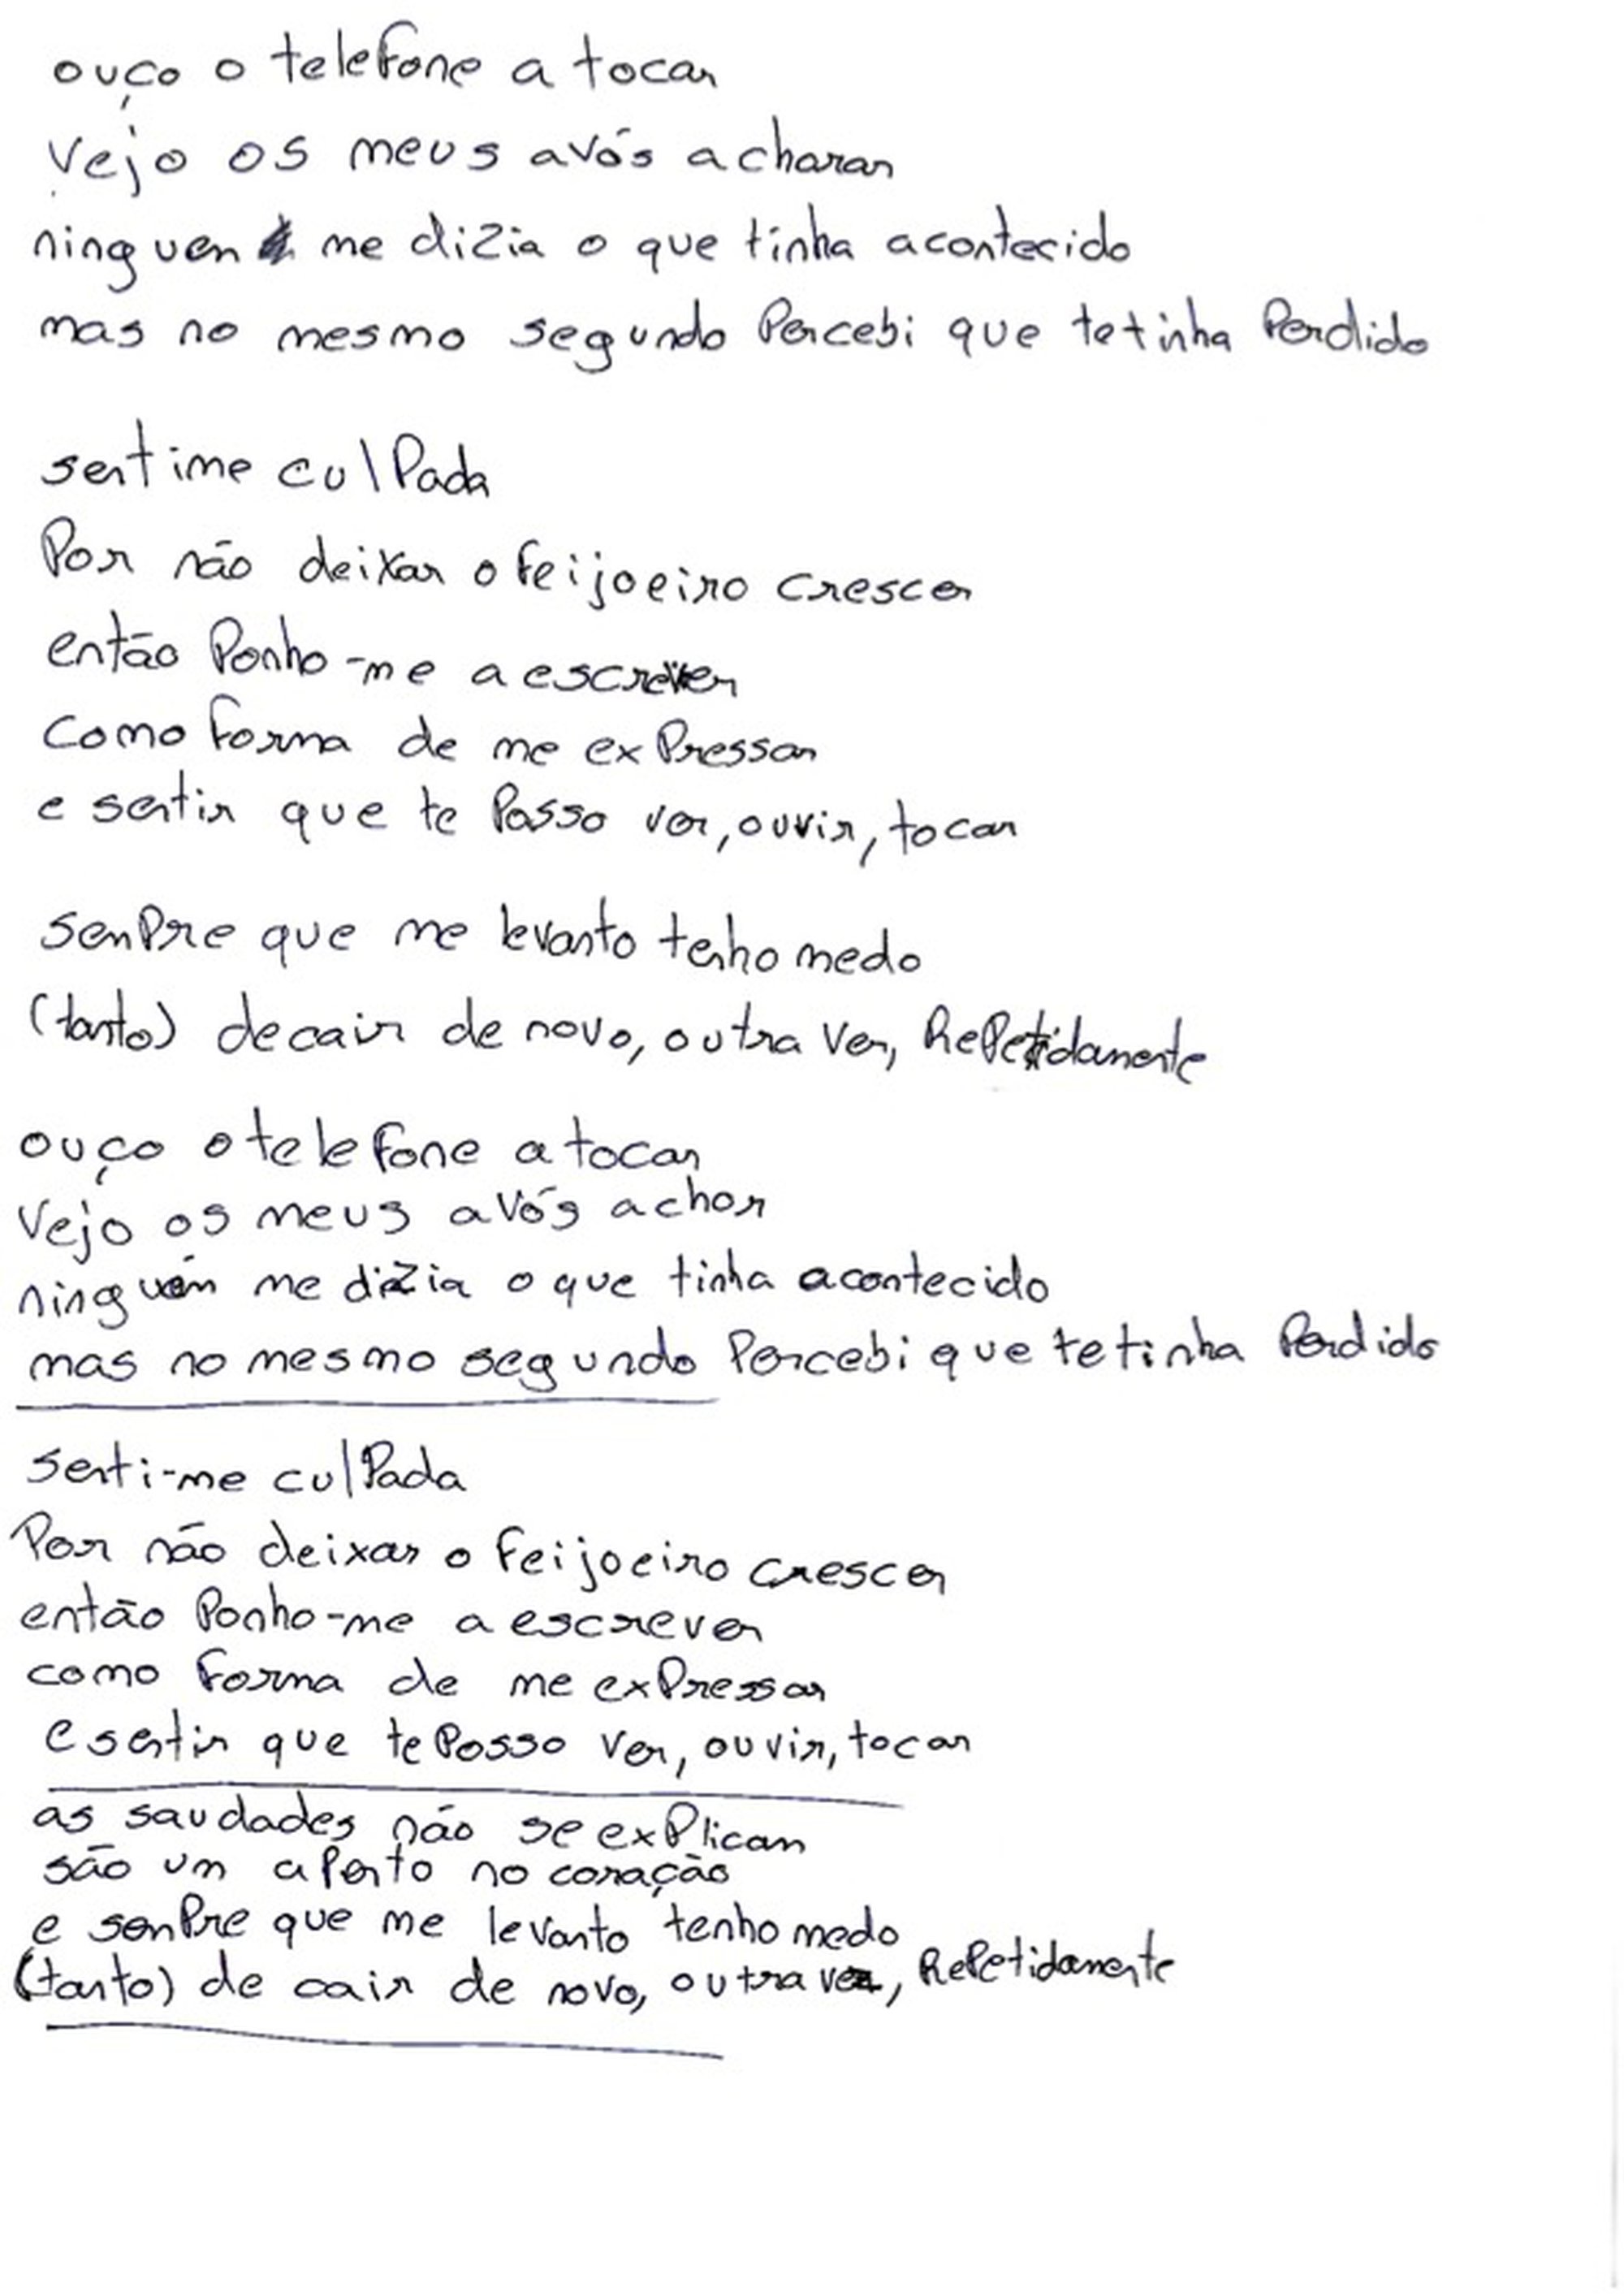 ouço o telefone a tocar
vejo os meus avós a charar
ninguen me dizia o que tinha acontecido
mas no mesmo segundo Percebi que te tinha Perdido
sentime culPada
Por não deixar o feijoeiro crescer
então Ponho-me a escrever
como forma de me exPressar
e sentir que te Posso ver, ouvir, tocar
senPre que me levanto tenho medo
(tanto) de cair de novo, outra ver, RePetidamente
ouço o telefone a tocar
vejo os meus avós a chor
ninguém me dizia o que tinha acontecido
mas no mesmo segundo Percebi que te tinha Perdido
senti-me culPada
Por não deixar o feijoeiro crescer
então Ponho-me a escrever
como forma de me exPressar
e sentir que te Posso ver, ouvir, tocar
as saudades não se exPlican
são um aPerto no coração
e senPre que me levanto tenho medo
(tanto) de cair de novo, outra vez, RePetidamente